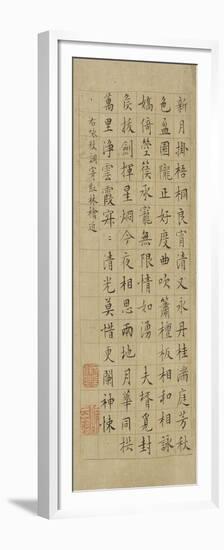 新月掛梧桐良宵清又永丹桂滿庭芳秋
色盈園隴正好度曲吹簫檀板相和相詠
嬌倚箜篌承寵無限情如湧　夫壻覓封
侯拔劍揮星炯今夜相思兩地月華同拱
萬里淨雲霞寂寂清光莫惜更闌神悚
右依故調寄紅林檎近